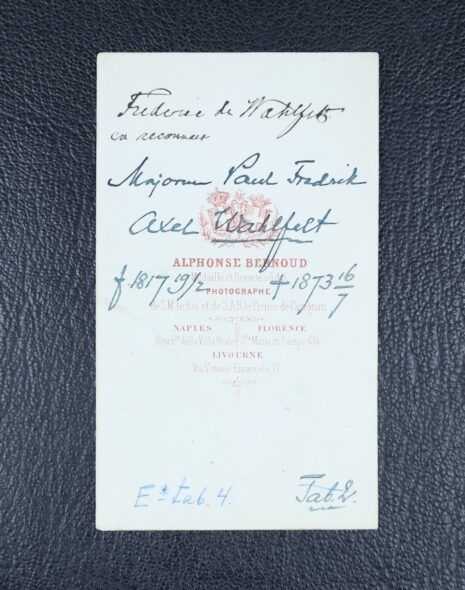 Fréderic de Wahlfelt
en reconnais
Majoren Paul Fredrik
Axel Wahlfelt
ALPHONSE BERNOUD
Médaillé et Breveté
f. 1817 19/2 † 1873 16/7
PHOTOGRAPHE
de S.M. le Roi et de S.A.R. le Prince de Carignan
NAPLES FLORENCE
della Villa Reale Maria in Campo, 434
LIVOURNE
Via Vittorio Emanuele, 71
E* tab. 4. Tab. 2.